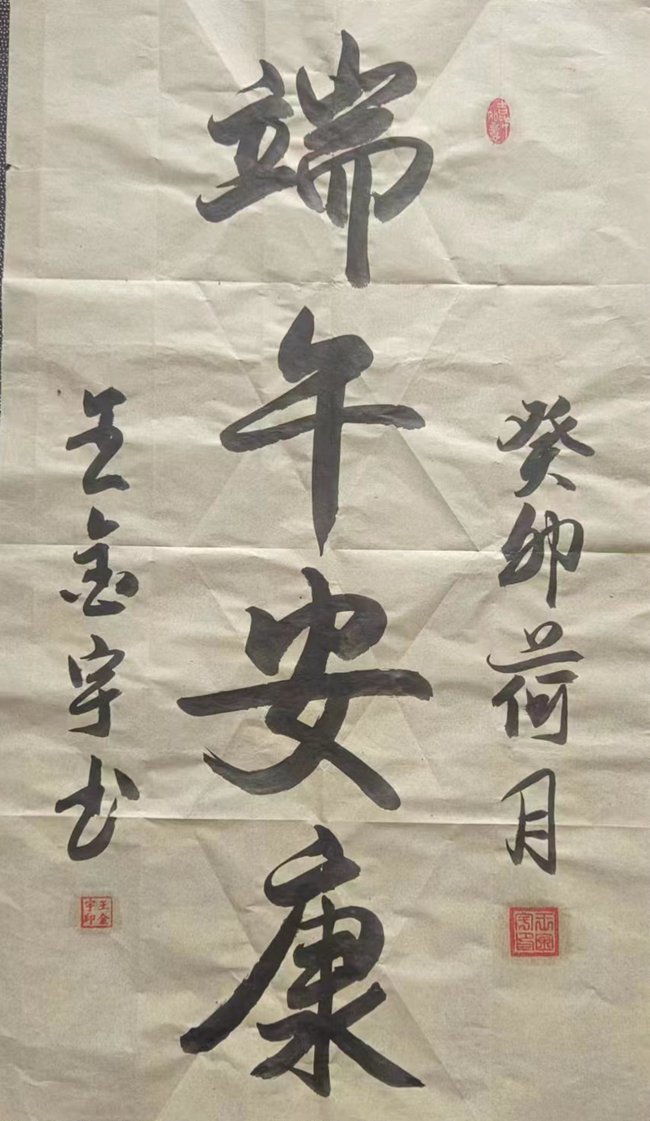 癸卯荷月
端午安康
王金宇书
王金
宇印